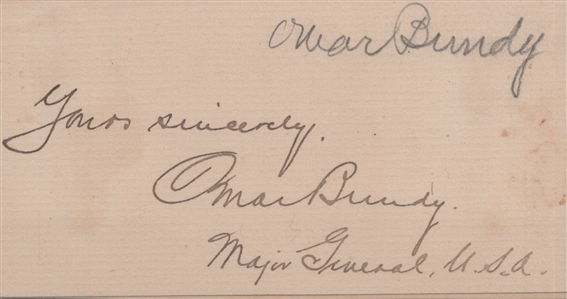 Omar Bundy
Yours sincerely,
Omar Bundy.
Major General, U.S.A.